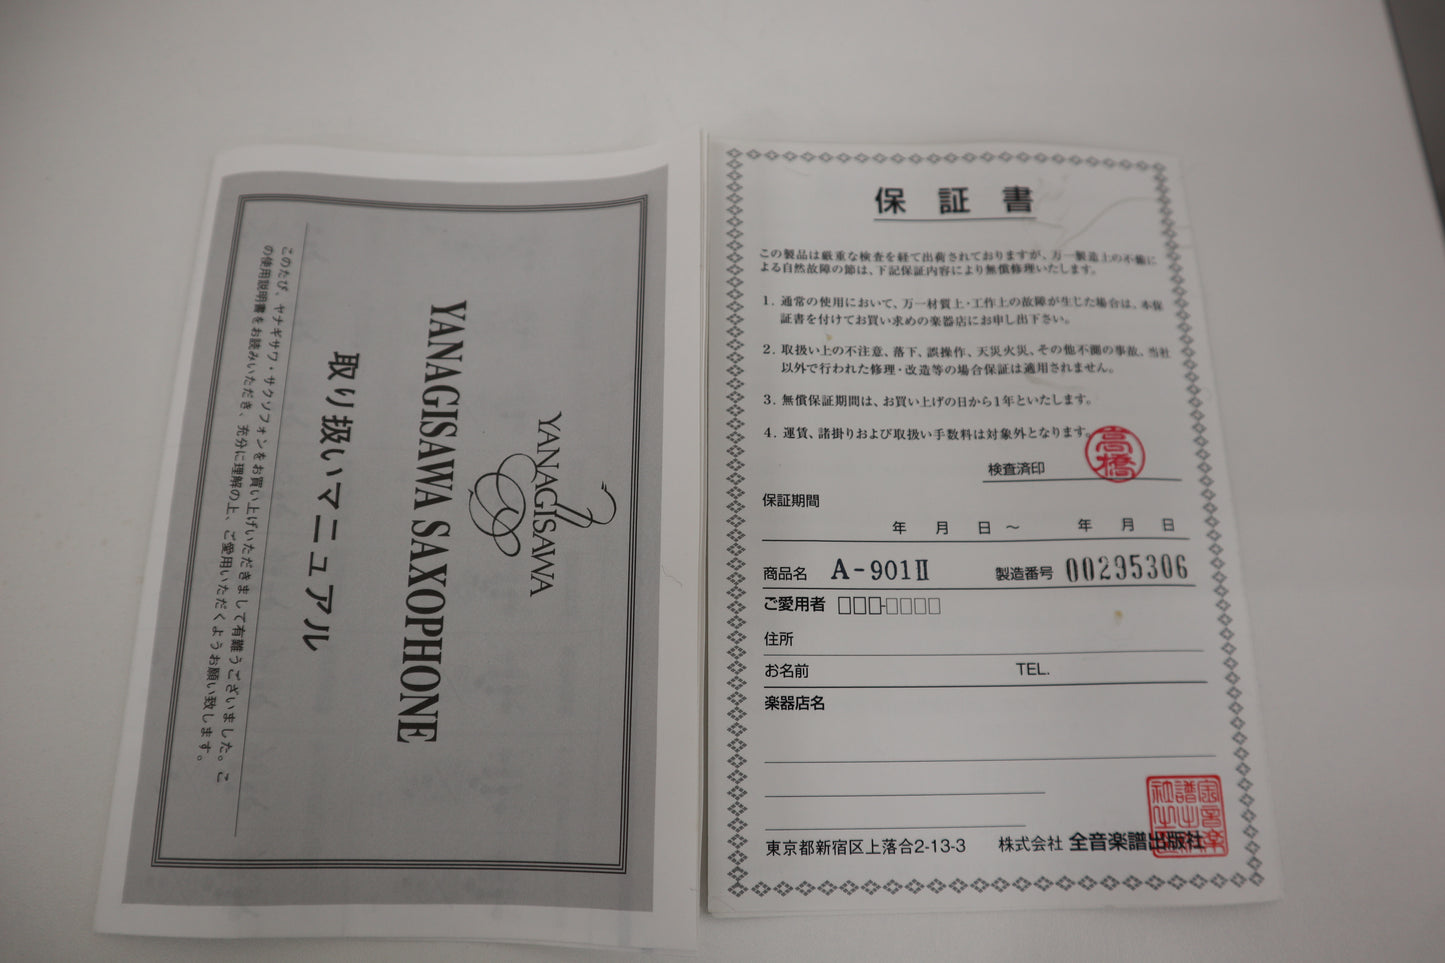 YANAGISAWA
YANAGISAWA SAXOPHONE
取り扱いマニュアル
このたび、ヤナギサワ・サクソフォンをお買い上げいただきまして有難うございました。こ
の使用説明書をお読みいただき、充分に理解の上、ご愛用いただくようお願い致します。
保証書
この製品は厳重な検査を経て出荷されておりますが、万一製造上の不備に
よる自然故障の節は、下記保証内容により無償修理いたします。
1. 通常の使用において、万一材質上・工作上の故障が生じた場合は、本保
証書を付けてお買い求めの楽器店にお申し出下さい。
2. 取扱い上の不注意、落下、誤操作、天災火災、その他不測の事故、当社
以外で行われた修理・改造等の場合保証は適用されません。
3. 無償保証期間は、お買い上げの日から1年といたします。
4. 運賃、諸掛りおよび取扱い手数料は対象外となります。
検査済印 高橋
保証期間
年 月 日 ～ 年 月 日
商品名 A-901II 製造番号 00295306
ご愛用者 □□□-□□□□
住所
お名前 TEL.
楽器店名
東京都新宿区上落合2-13-3 株式会社 全音楽譜出版社